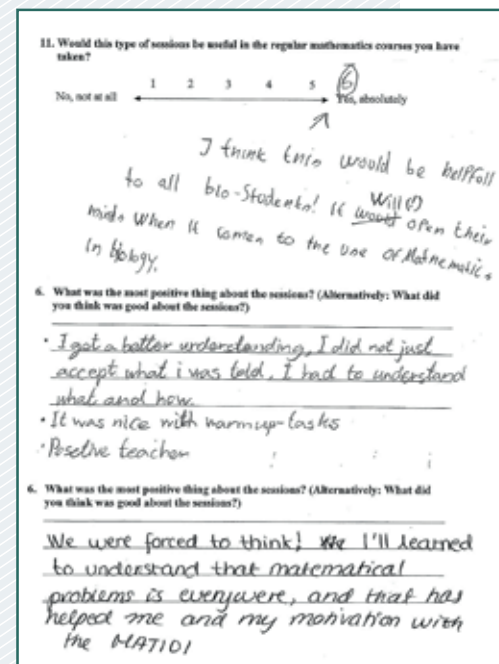 11. Would this type of sessions be useful in the regular mathematics courses you have
taken?
1 2 3 4 5 6
No, not at all Yes, absolutely
I think this would be helpfull
to all bio-Students! It would Will(!) open their
minds when it comes to the use of Mathematics
in biology.
6. What was the most positive thing about the sessions? (Alternatively: What did
you think was good about the sessions?)
• I got a better understanding, I did not just
accept what i was told, I had to understand
what and how.
• It was nice with warmup-tasks
• Posetive teacher
6. What was the most positive thing about the sessions? (Alternatively: What did
you think was good about the sessions?)
We were forced to think! We I'll learned
to understand that matematical
problems is everywere, and that has
helped me and my motivation with
the MAT101